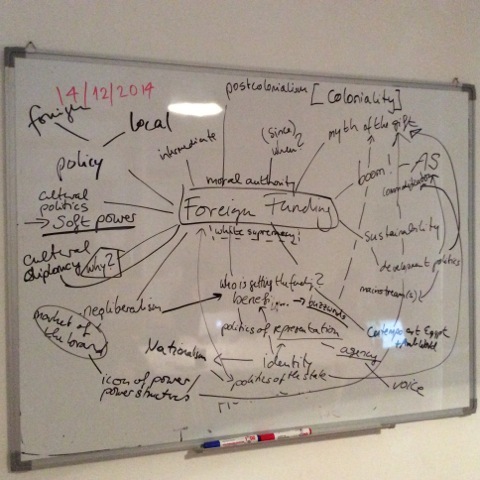 14/12/2014
postcolonialism [Coloniality]
foreign
local
policy
intermediate
(since)
when?
myth of the gift
moral authority
boom
AS
cultural
politics
→ Soft power
Foreign Funding
white supremacy!
sustainability
cultural
diplomacy
why?
development politics
mainstream(s)
who is getting the funding?
benefi
→ buzzwords
neoliberalism
market of
the brand
politics of representation
Contemporary Egypt
Nationalism
agency
identity
politics of the state
voice
icon of power
power structures